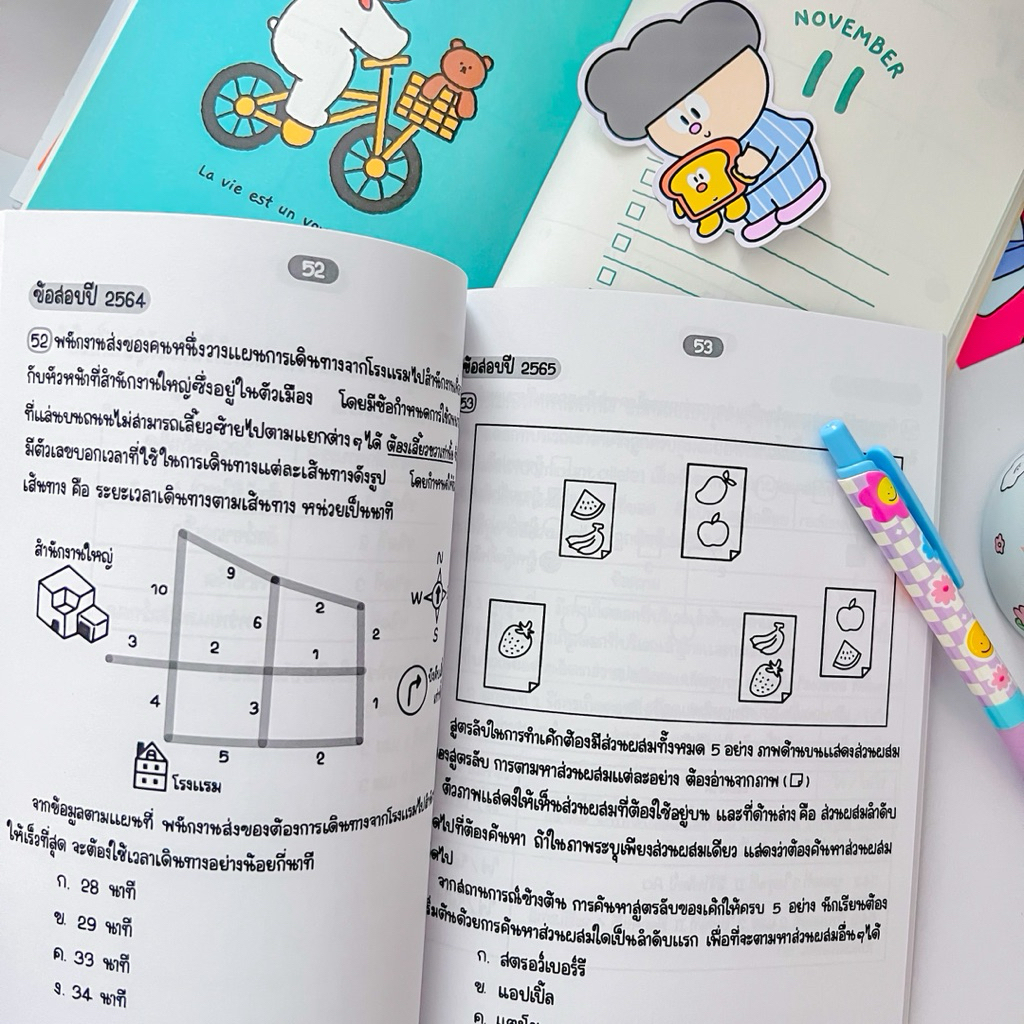 NOVEMBER
11
La vie est un
52
ข้อสอบปี 2564
52 พนักงานส่งของคนหนึ่งวางแผนการเดินทางจากโรงแรมไปสำนักงาน
กับหัวหน้าที่สำนักงานใหญ่ซึ่งอยู่ในตัวเมือง โดยมีข้อกำหนดการใช้
ที่แล่นบนถนนไม่สามารถเลี้ยวซ้ายไปตามแยกต่างๆได้ ต้องเลี้ยวขวาเท่านั้น
มีตัวเลขบอกเวลาที่ใช้ในการเดินทางแต่ละเส้นทางดังรูป
เส้นทาง คือ ระยะเวลาเดินทางตามเส้นทาง หน่วยเป็นนาที
สำนักงานใหญ่
10
9
6
2
2
3
2
1
4
3
1
5
2
N
W
S
โรงแรม
จากข้อมูลตามแผนที่ พนักงานส่งของต้องการเดินทางจากโรงแรม
ให้เร็วที่สุด จะต้องใช้เวลาเดินทางอย่างน้อยกี่นาที
ก. 28 นาที
ข. 29 นาที
ค. 33 นาที
ง. 34 นาที
53
ข้อสอบปี 2565
53
สูตรลับในการทำเค้กต้องมีส่วนผสมทั้งหมด 5 อย่าง ภาพด้านบนแสดงส่วนผสม
ของสูตรลับ การตามหาส่วนผสมแต่ละอย่าง ต้องอ่านจากภาพ ( )
ตัวภาพแสดงให้เห็นส่วนผสมที่ต้องใช้อยู่บน และที่ด้านล่าง คือ ส่วนผสมลำดับ
ถัดไปที่ต้องค้นหา ถ้าในภาพระบุเพียงส่วนผสมเดียว แสดงว่าต้องค้นหาส่วนผสม
ถัดไป
จากสถานการณ์ข้างต้น การค้นหาสูตรลับของเค้กให้ครบ 5 อย่าง นักเรียนต้อง
เริ่มต้นด้วยการค้นหาส่วนผสมใดเป็นลำดับแรก เพื่อที่จะตามหาส่วนผสมอื่นๆได้
ก. สตรอว์เบอร์รี
ข. แอปเปิ้ล
ค.